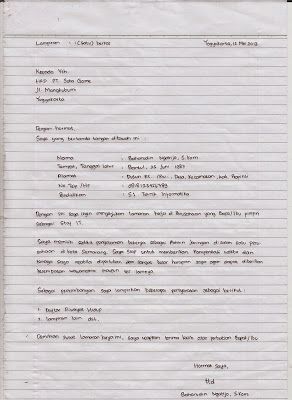 Lampiran : 1 (Satu) berkas Yogyakarta, 12 Mei 2013
Kepada Yth.
HRD PT. Solo Game
Jl. Mangkubumi
Yogyakarta
Dengan hormat,
Saya yang bertanda tangan di bawah ini :
Nama : Baharudin Ngatijo, S.Kom
Tempat, Tanggal Lahir : Bantul, 25 Juni 1987
Alamat : Dusun RT /RW , Desa, Kecamatan, kab. Provinsi
No. Telp /HP :
Pendidikan : S1 Teknik Informatika.
Dengan ini saya ingin mengajukan lamaran kerja di Perusahaan yang Bapak/Ibu pimpin
sebagai Staf IT.
Saya memiliki sedikit pengalaman bekerja sebagai Admin Jaringan di salah satu peru-
sahaan di kota Semarang. Saya siap untuk memberikan
tenaga saya apabila diperlukan dan sangat besar harapan saya agar dapat diberikan
kesempatan wawancara maupun tes lainnya.
Sebagai pertimbangan saya lampirkan beberapa persyaratan sebagai berikut :
1. Daftar Riwayat Hidup
2. Lampiran lain dst.
Demikian surat lamaran kerja ini, saya ucapkan terima kasih atas perhatian Bapak/Ibu
Hormat Saya,
ttd
Baharudin Ngatijo, S.Kom